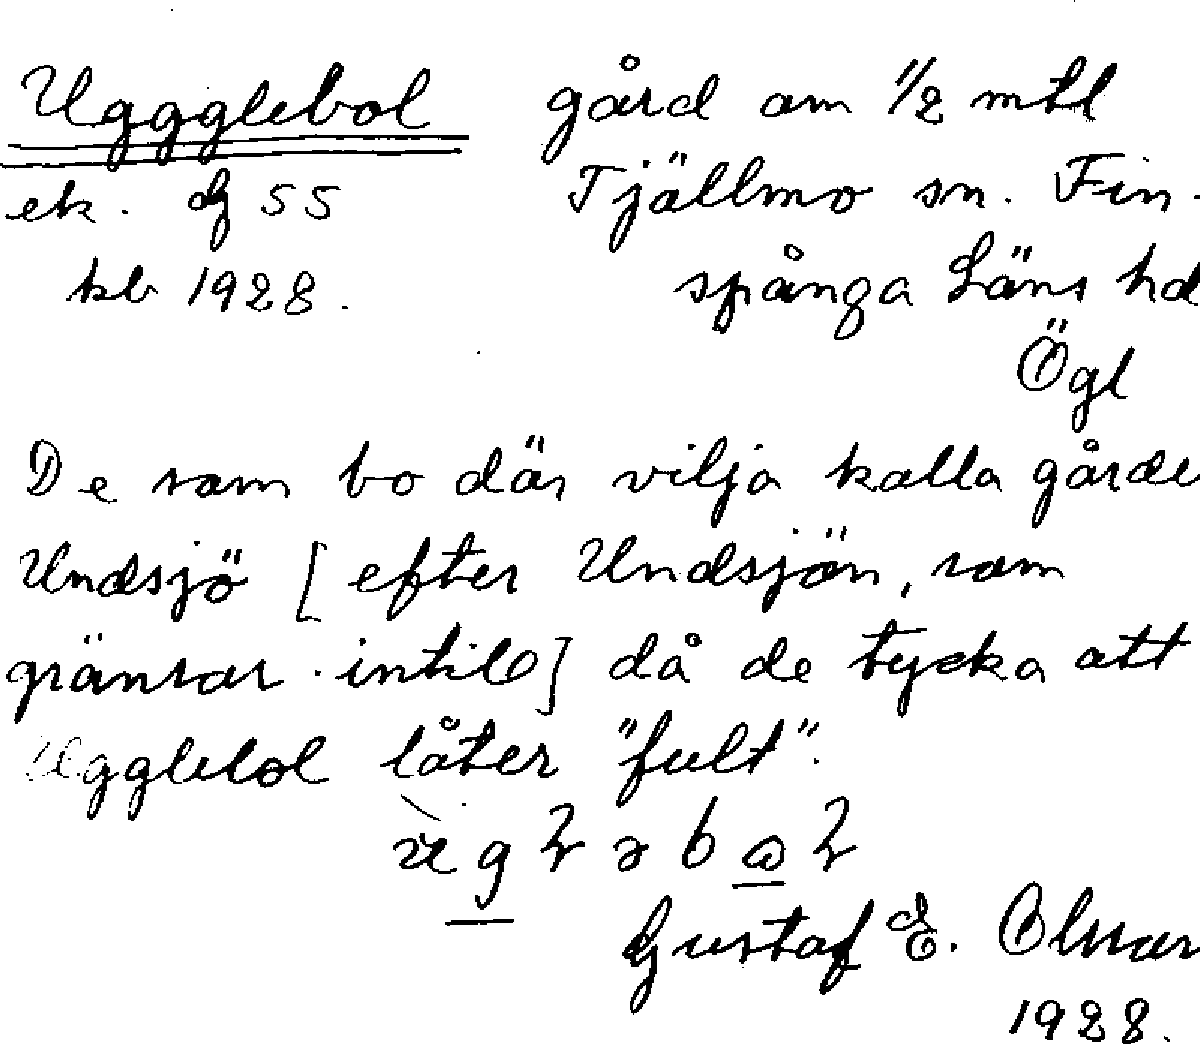 Uggglebol gård om 1/2 mtl
ek. df 55 Tjällmo sn. Fin-
kb 1928. spånga Läns hd
Ögl
De som bo där vilja kalla gårde
Undsjö [efter Undsjön, som
gränsar intill] då de tycka att
Ugglebol låter "fult".
Gustaf E. Olsson
1928.